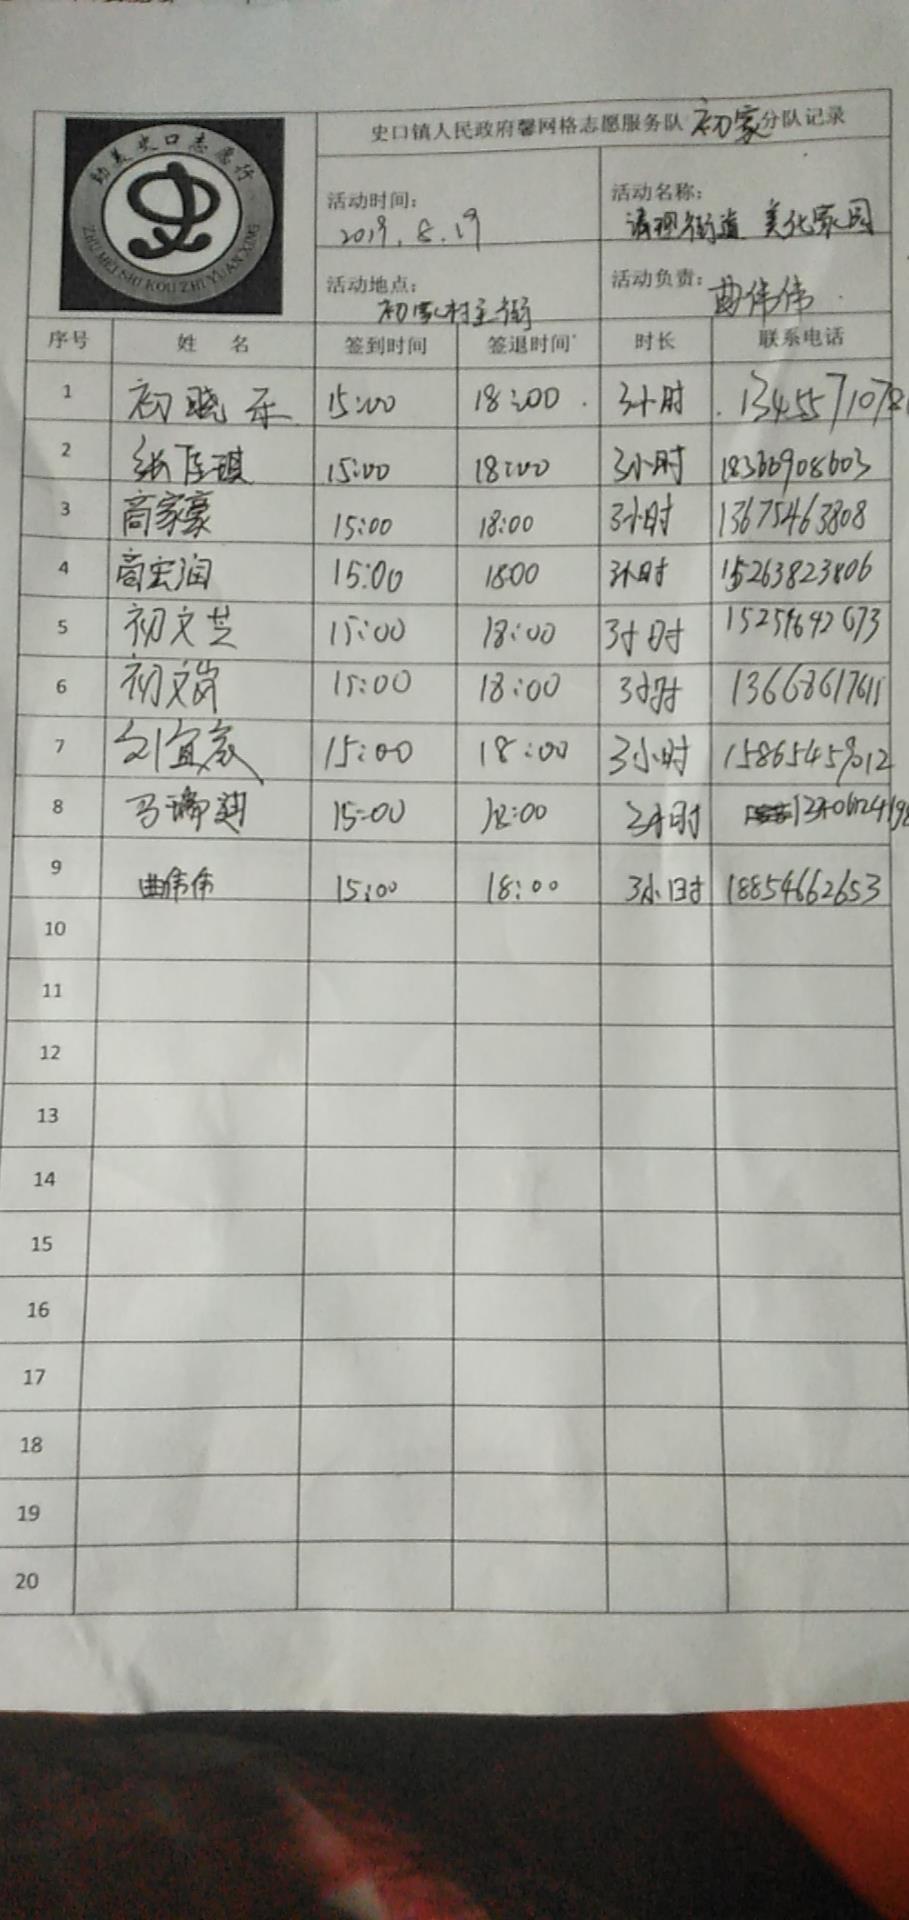 助美史口志愿行
ZHU MEI SHI KOU ZHI YUAN XING
史口镇人民政府馨网格志愿服务队 初家 分队记录
活动时间: 2019.8.19
活动名称: 清理街道 美化家园
活动地点: 初家村主街
活动负责: 曲伟伟
序号 姓 名 签到时间 签退时间 时长 联系电话
1 初晓乐 15:00 18:00 3小时
2 15:00 18:00 3小时 18366908603
3 商家豪 15:00 18:00 3小时 13675463808
4 商宏润 15:00 18:00 3小时 15263823806
5 初文芝 15:00 18:00 3小时
6 初文岗 15:00 18:00 3小时
7 刘宜家 15:00 18:00 3小时 15865459012
8 马瑞 15:00 18:00 3小时
9 曲伟伟 15:00 18:00 3小时 18854662653
10
11
12
13
14
15
16
17
18
19
20